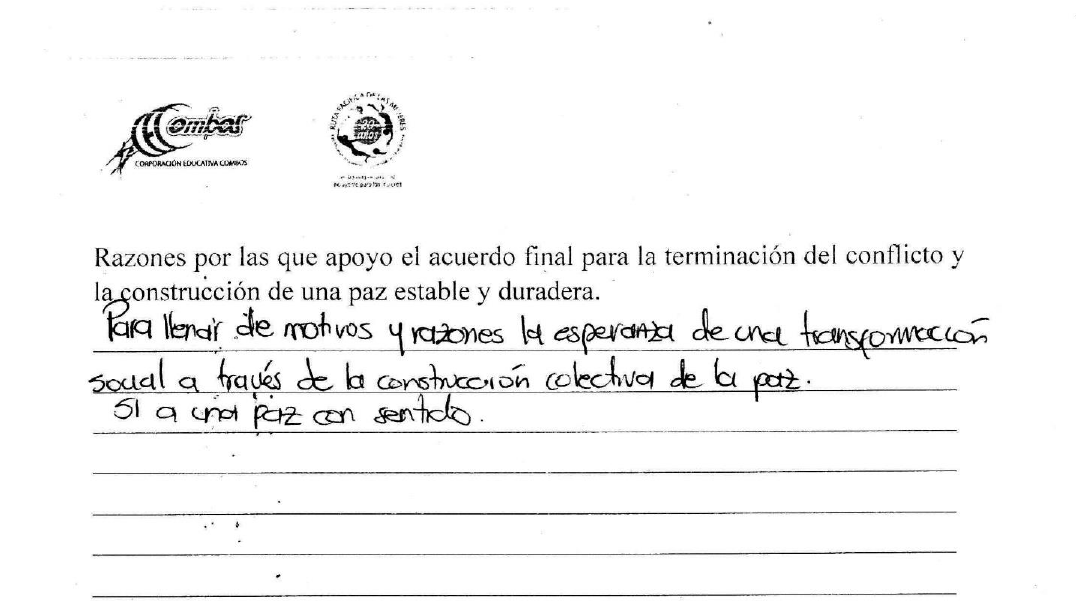 Combos
CORPORACIÓN EDUCATIVA COMBOS
RUTA PACÍFICA DE LAS MUJERES
Razones por las que apoyo el acuerdo final para la terminación del conflicto y
la construcción de una paz estable y duradera.
Para llenar de motivos y razones la esperanza de una transformación
social a través de la construcción colectiva de la paz.
SI a una paz con sentido.